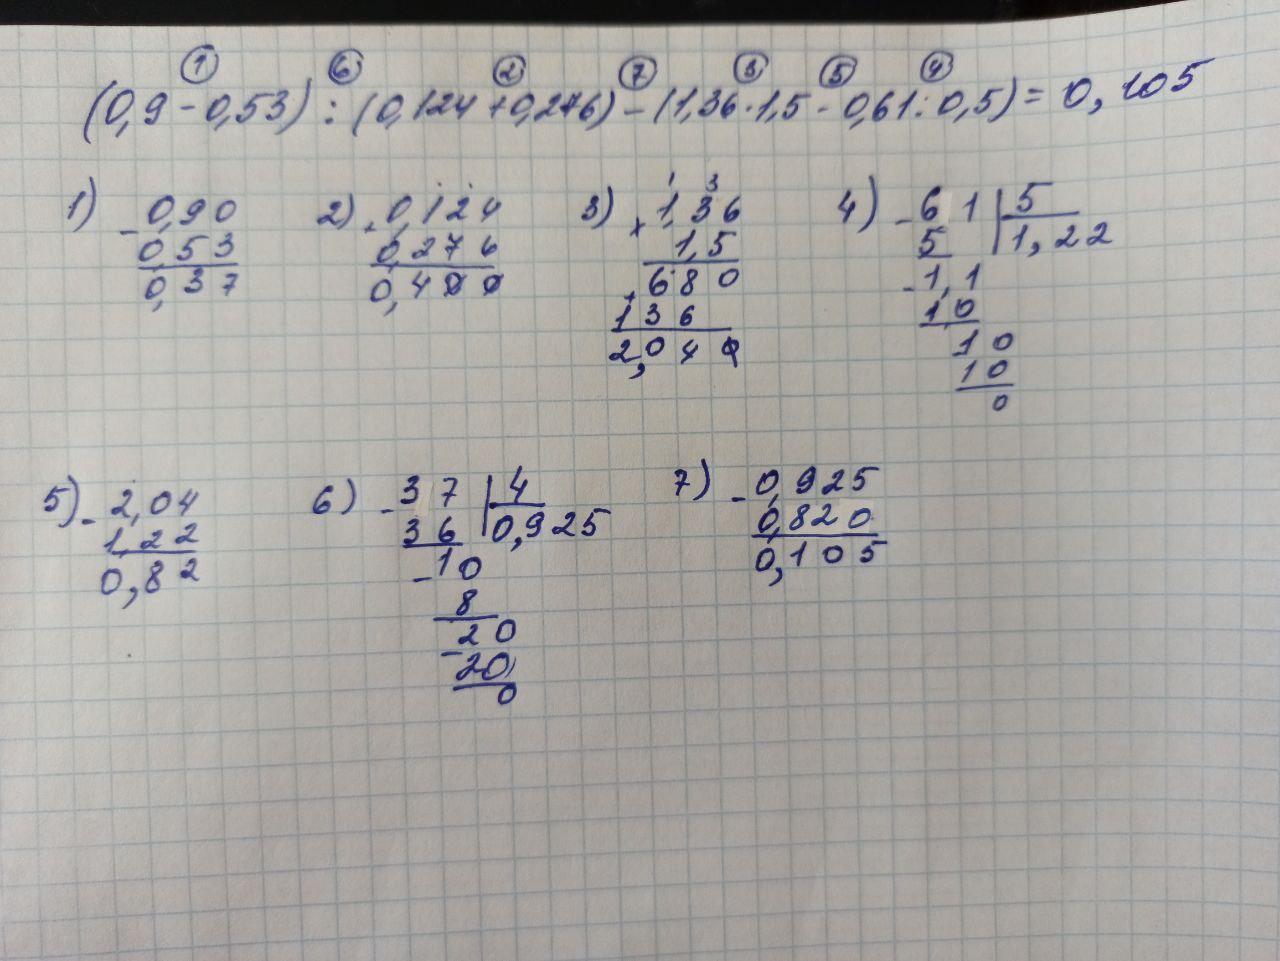 ① ⑥ ② ⑦ ③ ⑤ ④
(0,9 - 0,53) : (0,124 + 0,276) - (1,36 · 1,5 - 0,61 : 0,5) = 0,105
1) - 0,90
0,53
0,37
2) + 0,124
0,276
0,400
3) 1 3
× 1,36
1,5
680
+ 136
2,040
4) - 61 | 5
5 | 1,22
- 1,1
10
10
10
0
5) - 2,04
1,22
0,82
6) - 37 | 4
36 | 0,925
- 10
8
- 20
20
0
7) - 0,925
0,820
0,105